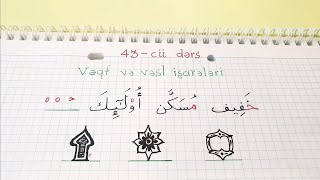 43-cü dərs
Vəqt və vəsl işarələri
خَفِيف مُسَكَّن أُوْلَٰٓئِكَ